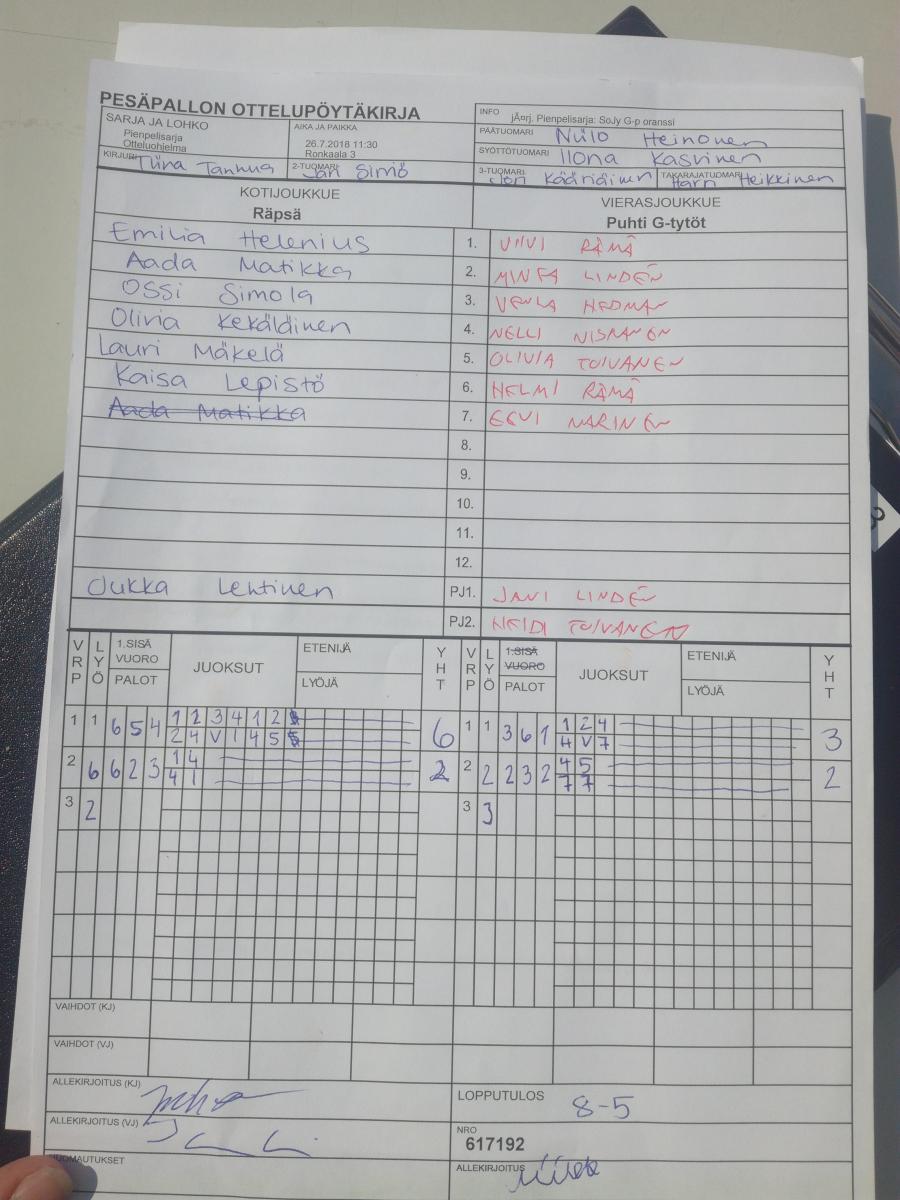 PESÄPALLON OTTELUPÖYTÄKIRJA
SARJA JA LOHKO
Pienpelisarja
Otteluohjelma
AIKA JA PAIKKA
26.7.2018 11:30
Ronkaala 3
INFO jÃ¤rj. Pienpelisarja: SoJy G-p oranssi
PÄÄTUOMARI Niilo Heinonen
SYÖTTÖTUOMARI Ilona Kasvinen
KIRJURI Tiina Tanhua 2-TUOMARI Jari Simö
3-TUOMARI Jon Kääriäinen TAKARAJATUOMARI Harri Heikkinen
KOTIJOUKKUE
Räpsä
VIERASJOUKKUE
Puhti G-tytöt
Emilia Helenius 1. VIIVI RÄMÄ
Aada Matikka 2. MINEA LINDÉN
Ossi Simola 3. VENLA HEDMAN
Olivia Kekäläinen 4. NELLI NISKANEN
Lauri Mäkelä 5. OLIVIA TOIVANEN
Kaisa Lepistö 6. HELMI RÄMÄ
Aada Matikka 7. EEVI NARINEN
8.
9.
10.
11.
12.
Jukka Lehtinen PJ1. JANI LINDÉN
PJ2. HEIDI TOIVANEN
VRP LYÖ 1.SISÄ VUORO PALOT JUOKSUT ETENIJÄ LYÖJÄ YHT VRP LYÖ 1.SISÄ VUORO PALOT JUOKSUT ETENIJÄ LYÖJÄ YHT
1 1 6 5 4 1 2 3 4 1 2 6 1 1 3 6 1 1 2 4 3
2 4 V 1 4 5 4 V 7
2 6 6 2 3 1 4 2 2 2 2 3 2 4 5 2
4 1 7 7
3 2 3 3
VAIHDOT (KJ)
VAIHDOT (VJ)
ALLEKIRJOITUS (KJ)
LOPPUTULOS 8-5
ALLEKIRJOITUS (VJ)
NRO
617192
HUOMAUTUKSET
ALLEKIRJOITUS